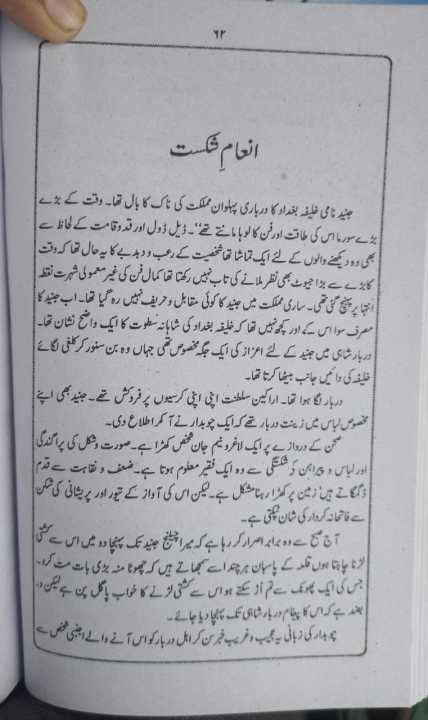 ۶۲
انعامِ شکست
جنید نامی خلیفہ بغداد کا درباری پہلوان مملکت کی ناک کا بال تھا۔ وقت کے بڑے
بڑے سورما اس کی طاقت اور فن کا لوہا مانتے تھے۔ ڈیل ڈول اور قد و قامت کے لحاظ سے
بھی وہ دیکھنے والوں کے لئے ایک تماشا تھا شخصیت کے رعب و دبدبے کا یہ حال تھا کہ وقت
کا بڑے سے بڑا جیوٹ بھی نظر ملانے کی تاب نہیں رکھتا تھا کمال فن کی غیر معمولی شہرت نقطۂ
انتہا پر پہنچ گئی تھی۔ ساری مملکت میں جنید کا کوئی مقابل و حریف نہیں رہ گیا تھا۔ اب جنید کا
مصرف سوا اس کے اور کچھ نہیں تھا کہ خلیفہ بغداد کی شاہانہ سطوت کا ایک واضح نشان تھا۔
دربار شاہی میں جنید کے لئے اعزاز کی ایک جگہ مخصوص تھی جہاں وہ بن سنور کر کلغی لگائے
خلیفہ کی دائیں جانب بیٹھا کرتا تھا۔
دربار لگا ہوا تھا۔ اراکین سلطنت اپنی اپنی کرسیوں پر فروکش تھے۔ جنید بھی اپنے
مخصوص لباس میں زینت دربار تھے کہ ایک چوبدار نے آ کر اطلاع دی۔
صحن کے دروازے پر ایک لاغر و نیم جان شخص کھڑا ہے۔ صورت و شکل کی پراگندگی
اور لباس و پیراہن کی شکستگی سے وہ ایک فقیر معلوم ہوتا ہے۔ ضعف و نقاہت سے قدم
ڈگمگاتے ہیں زمین پر کھڑا رہنا مشکل ہے۔ لیکن اس کی آواز کے تیور اور پریشانی کی شکن
سے فاتحانہ کردار کی شان ٹپکتی ہے۔
آج صبح سے وہ برابر اصرار کر رہا ہے کہ میرا چیلنج جنید تک پہنچا دو میں اس سے کشتی
لڑنا چاہتا ہوں قلعہ کے پاسبان ہر چند اسے سمجھاتے ہیں کہ چھوٹا منہ بڑی بات مت کرو۔
جس کی ایک پھونک سے تم اڑ سکتے ہو اس سے کشتی لڑنے کا خواب پاگل پن ہے لیکن وہ
بضد ہے کہ اس کا پیغام دربار شاہی تک پہنچا دیا جائے۔
چوبدار کی زبانی یہ عجیب و غریب خبر سن کر اہل دربار کو اس آنے والے اجنبی شخص سے